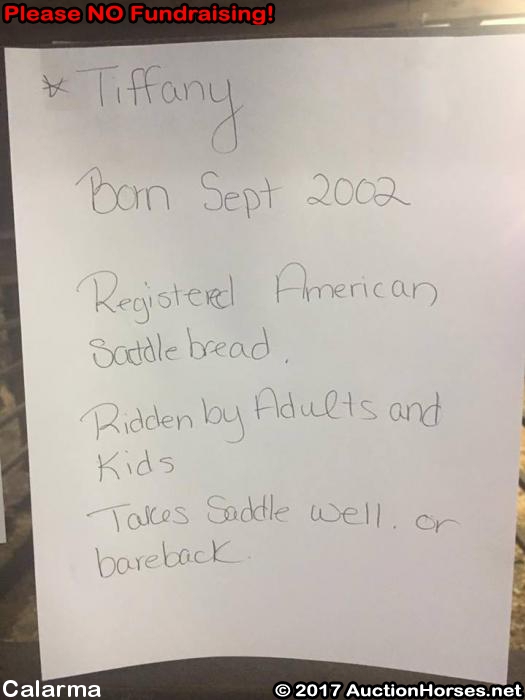 Please NO Fundraising!
* Tiffany
Born Sept 2002
Registered American
Saddle bread.
Ridden by Adults and
Kids
Takes Saddle well. or
bareback.
Calarma
© 2017 AuctionHorses.net